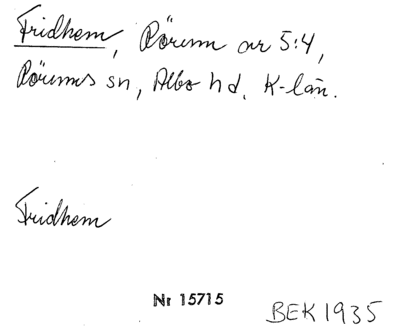 Fridhem, Rörum nr 5:4,
Rörums sn, Albo hd, K-län.
Fridhem
Nr 15715
BEK 1935